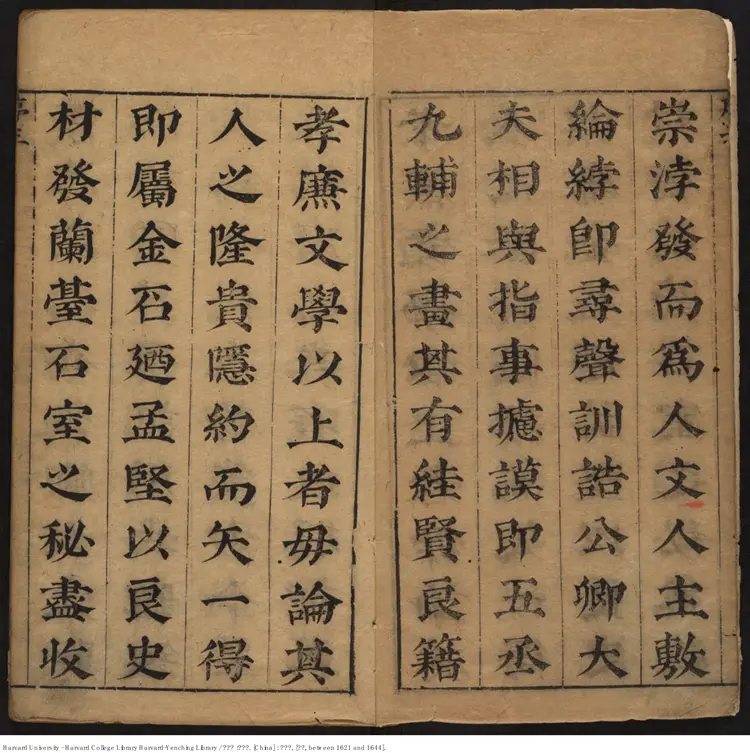 崇浡發而爲人文人主敷
綸綍卽尋聲訓誥公卿大
夫相與指事攄謨即五丞
九輔之畫其有絓賢良籍
孝廉文學以上者毋論其
人之隆貴隱約而矢一得
即屬金石廼孟堅以良史
材發蘭臺石室之秘盡收
Harvard University - Harvard College Library Harvard-Yenching Library / ??? : ???. [China] : ???, [??, between 1621 and 1644].